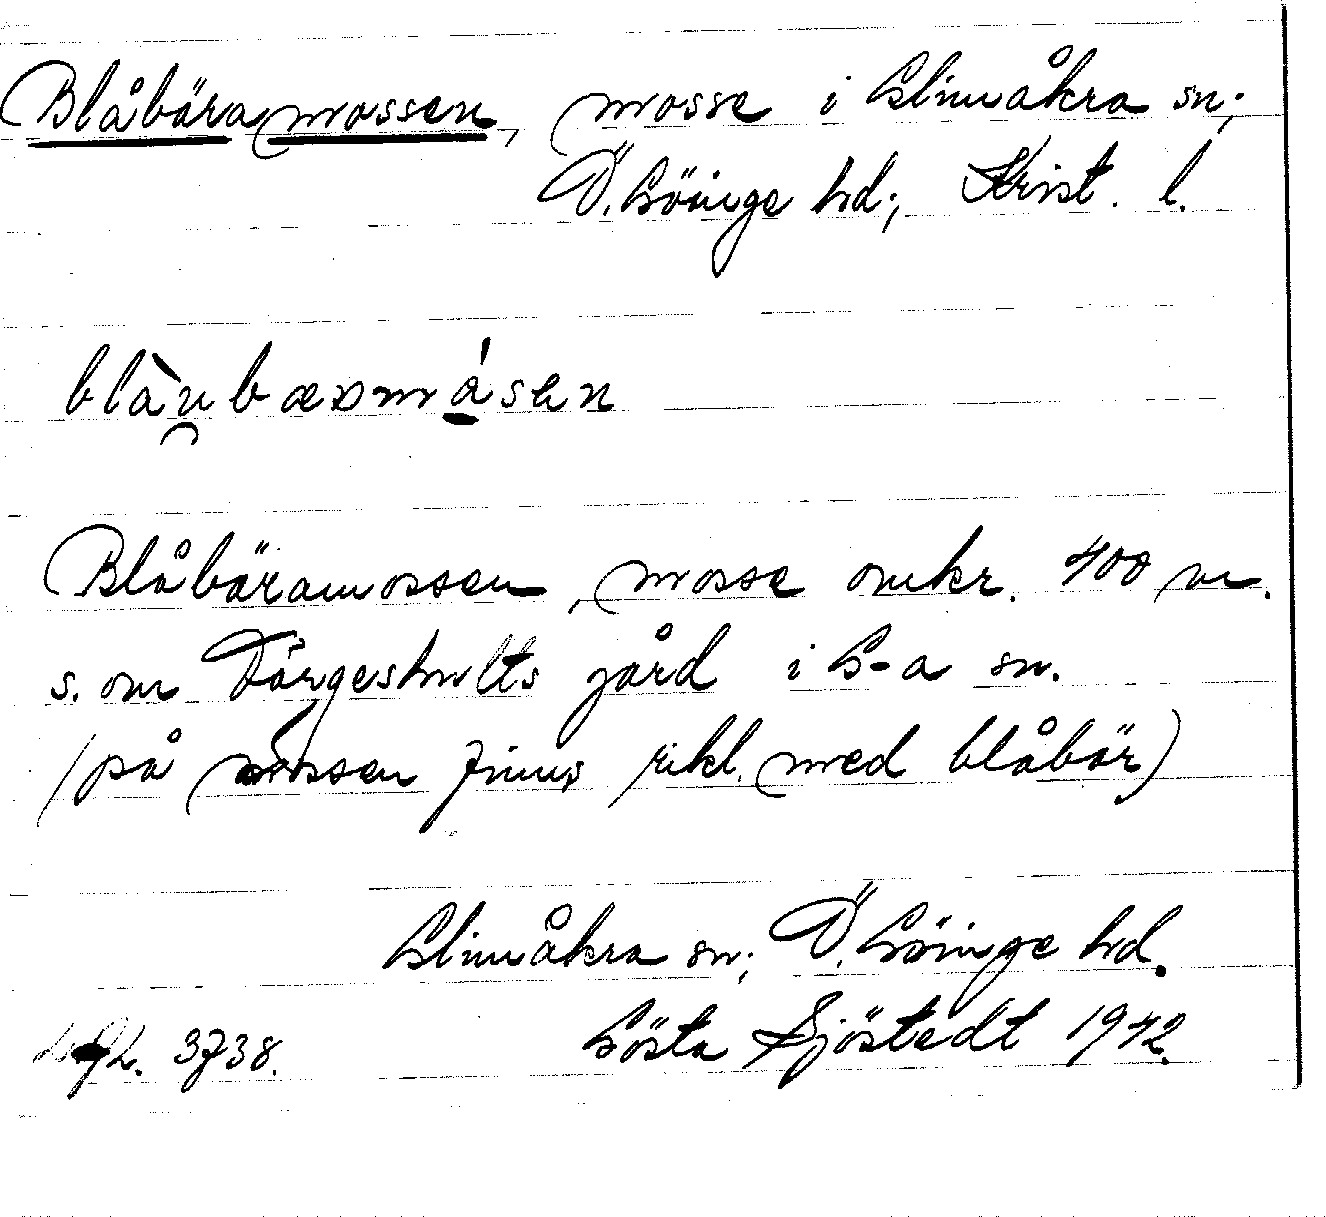 Blåbäramossen, mosse i Glimåkra sn;
Ö. Göinge hd; Krist. l.
blàu̯bæʀmåsen
Blåbäramossen, mosse omkr. 400 m.
s. om Färgeshults gård i G-a sn.
(på mossen finns rikl. med blåbär)
Glimåkra sn; Ö. Göinge hd.
3738. Gösta Sjöstedt 1942.